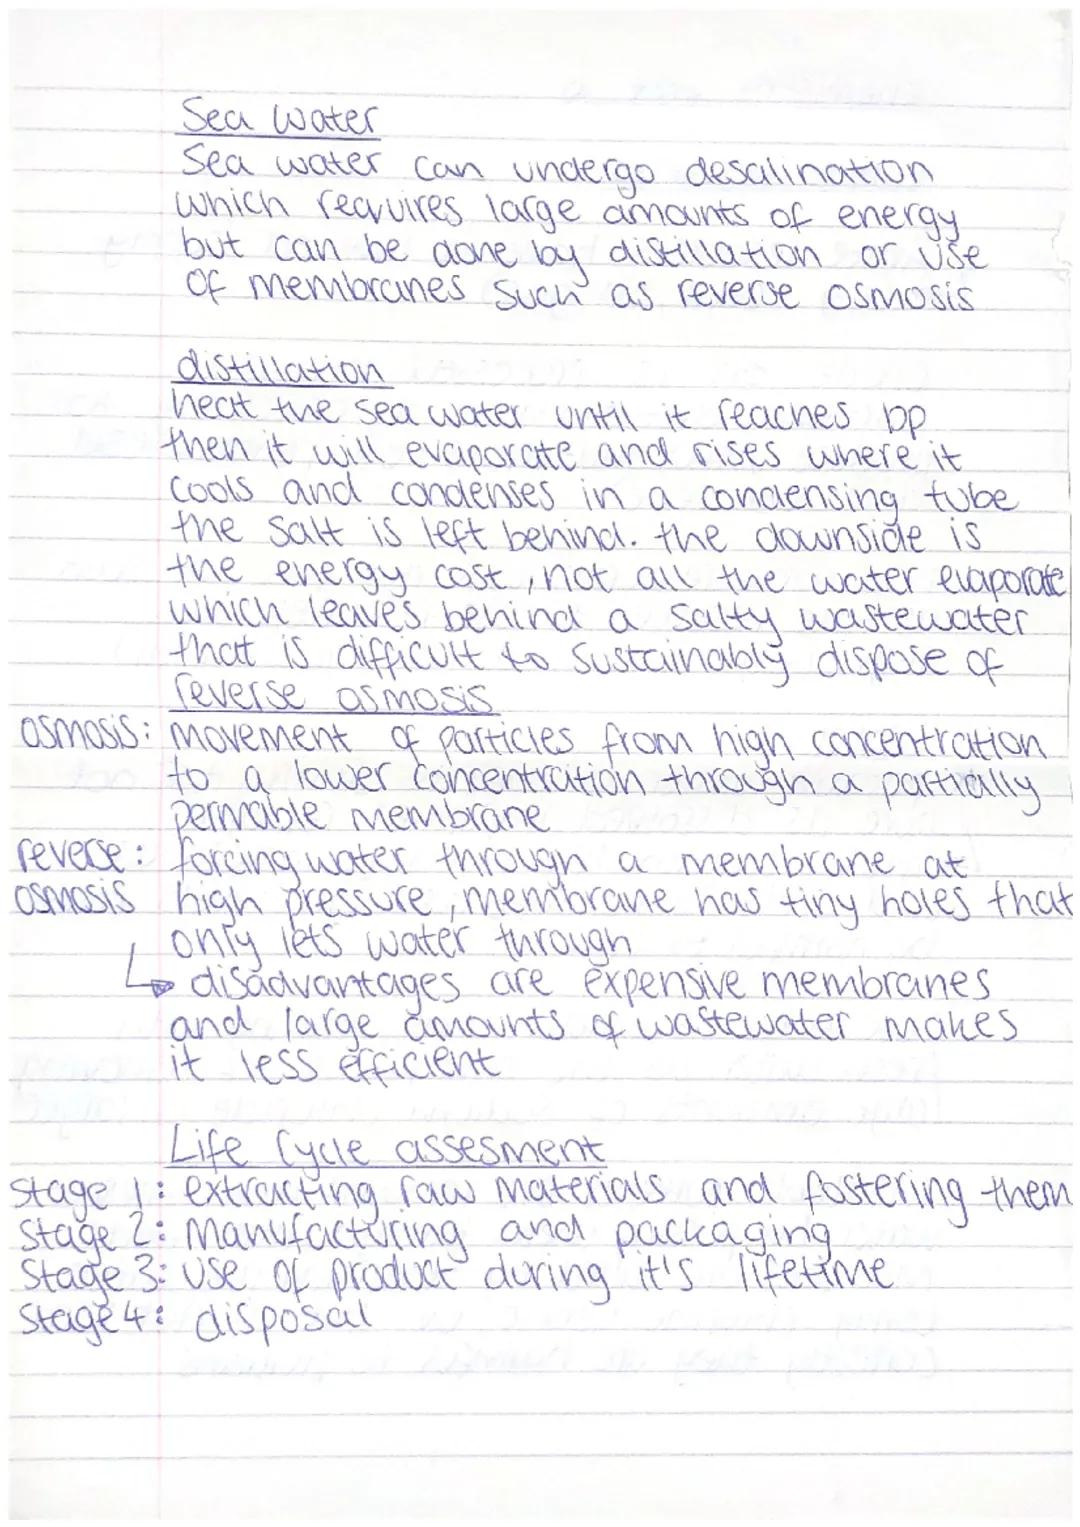 Sea Water
Sea water can undergo desalination
which requires large amounts of energy
but can be done by distillation or use
of membranes such as reverse osmosis
distillation
heat the sea water until it reaches bp
then it will evaporate and rises where it
cools and condenses in a condensing tube
the salt is left behind. the downside is
the energy cost, not all the water evaporate
which leaves behind a salty wastewater
that is difficult to sustainably dispose of
reverse osmosis
osmosis: movement of particles from high concentration
to a lower concentration through a partially
permable membrane
reverse: forcing water through a membrane at
osmosis high pressure, membrane has tiny holes that
only lets water through
↳ disadvantages are expensive membranes
and large amounts of wastewater makes
it less efficient
Life Cycle assesment
stage 1: extracting raw materials and fostering them
stage 2: Manufacturing and packaging
Stage 3: use of product during it's lifetime
Stage 4: disposal